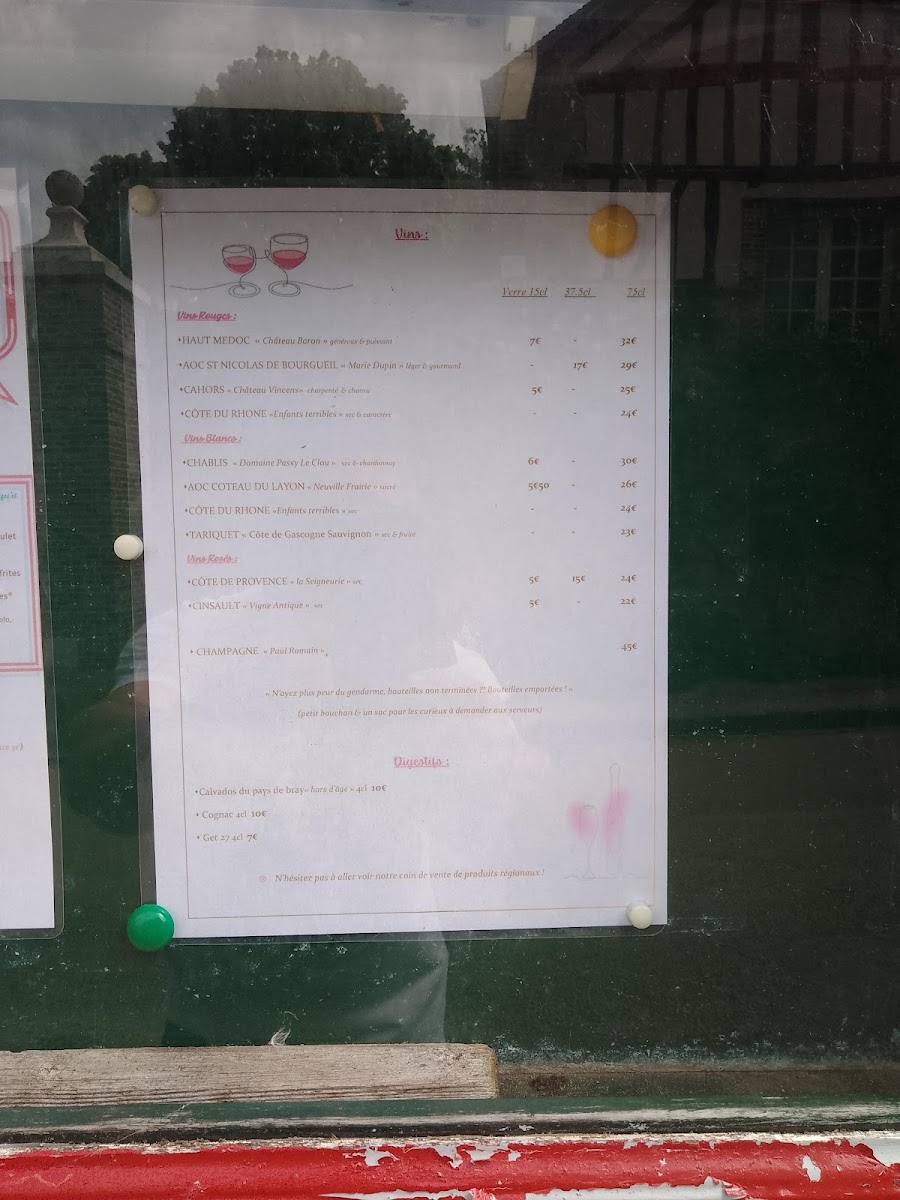 Vins :
Verre 15cl 37.5cl 75cl
Vins Rouges :
HAUT MEDOC « Château Baron » généreux & puissant 7€ - 32€
AOC ST NICOLAS DE BOURGUEIL « Marie Dupin » léger & gourmand - 17€ 29€
CAHORS « Château Vincens» charpenté & charnu 5€ - 25€
CÔTE DU RHONE «Enfants terribles » sec & caractère - - 24€
Vins Blancs :
CHABLIS « Domaine Passy Le Clou » sec & chardonnay 6€ - 30€
AOC COTEAU DU LAYON « Neuville Frairie » sucré 5€50 - 26€
CÔTE DU RHONE «Enfants terribles » sec - - 24€
TARIQUET « Côte de Gascogne Sauvignon » sec & fruité - - 23€
Vins Rosés :
CÔTE DE PROVENCE « la Seigneurie » sec 5€ 15€ 24€
CINSAULT « Vigne Antique » sec 5€ - 22€
CHAMPAGNE « Paul Romain » 45€
« N'ayez plus peur du gendarme, bouteilles non terminées ?! Bouteilles emportées ! »
(petit bouchon & un sac pour les curieux à demander aux serveurs)
Digestifs :
Calvados du pays de bray« hors d'âge » 4cl 10€
Cognac 4cl 10€
Get 27 4cl 7€
N'hésitez pas à aller voir notre coin de vente de produits régionaux !
ulet
frites